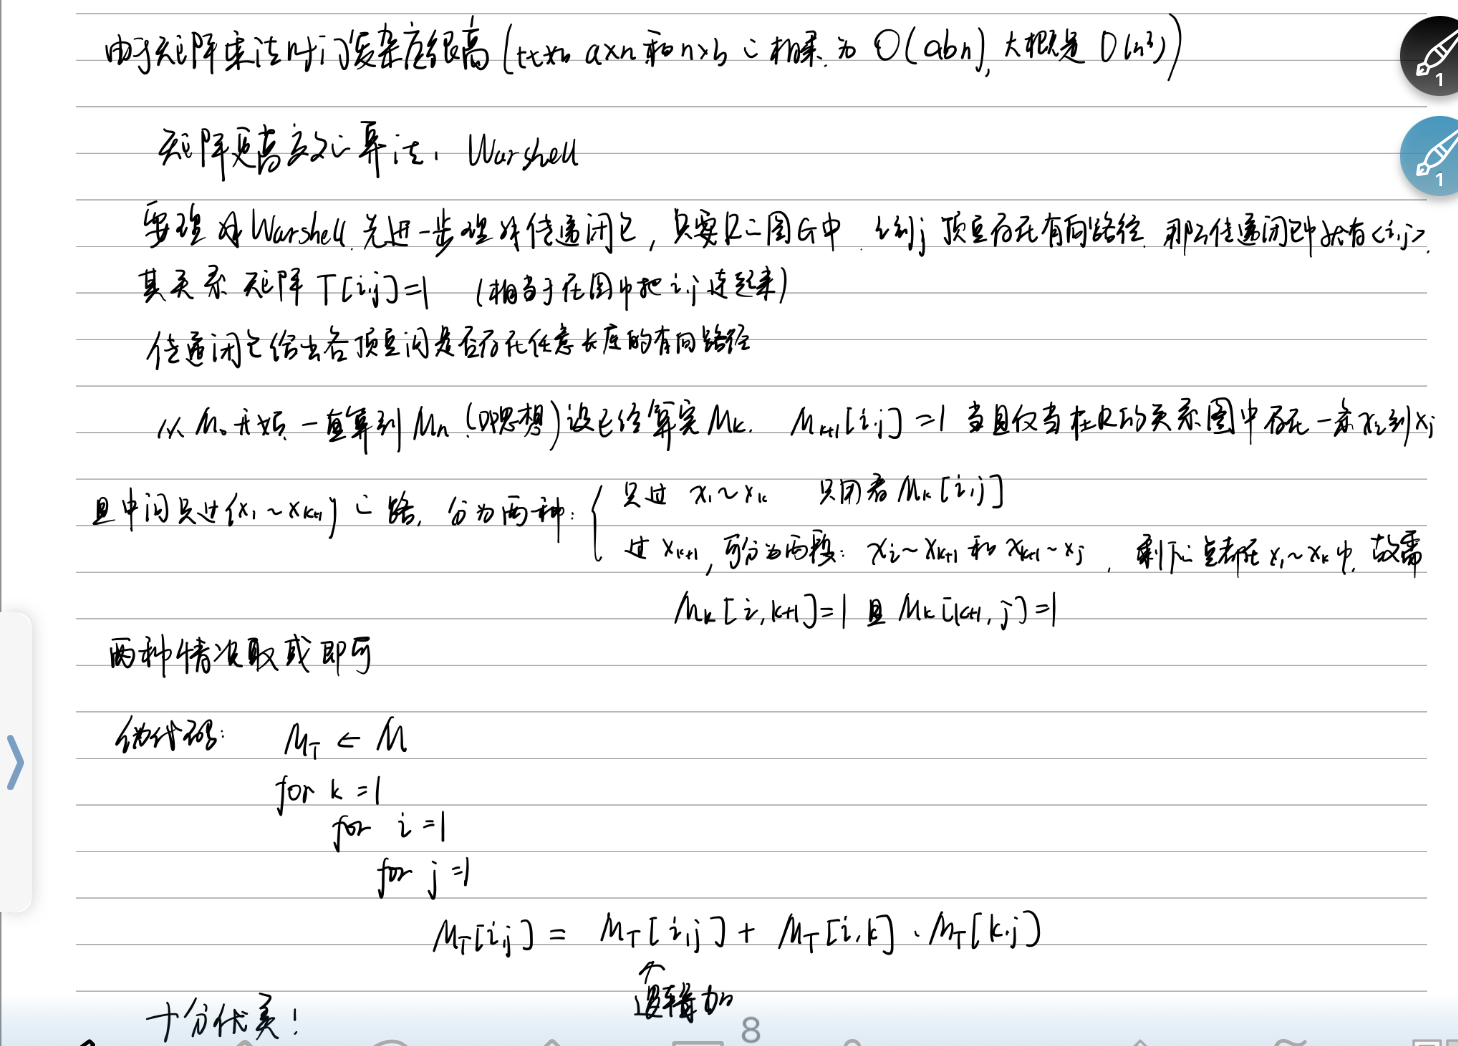 由于矩阵乘法时间复杂度很高(比如 a×n 和 n×b 之相乘.为 O(abn),大概是 O(n³))
矩阵更高效之算法: Warshell
要理解Warshell,先进一步理解传递闭包,只要R之图G中.i到j顶点存在有向路径.那么传递闭包中就有<i,j>.
其关系矩阵 T[i,j]=1 (相当于在图中把i,j连起来)
传递闭包给出各顶点间是否存在任意长度的有向路径
从 M₀ 开始,一直算到 Mn (DP思想) 设已经算完 Mk. Mk+1[i,j]=1 当且仅当在R的关系图中存在一条xi到xj
且中间只过{x₁~xk+1}之路, 分为两种: { 只过 x₁~xk 只用看 Mk[i,j]
过 xk+1,可分为两段: xi~xk+1 和 xk+1~xj, 剩下之点都在 x₁~xk中.故需
Mk[i,k+1]=1 且 Mk[k+1,j]=1
两种情况取或即可
伪代码: MT ← M
for k=1
for i=1
for j=1
MT[i,j] = MT[i,j] + MT[i,k] · MT[k,j]
↑
逻辑加
十分优美!
8
1
1